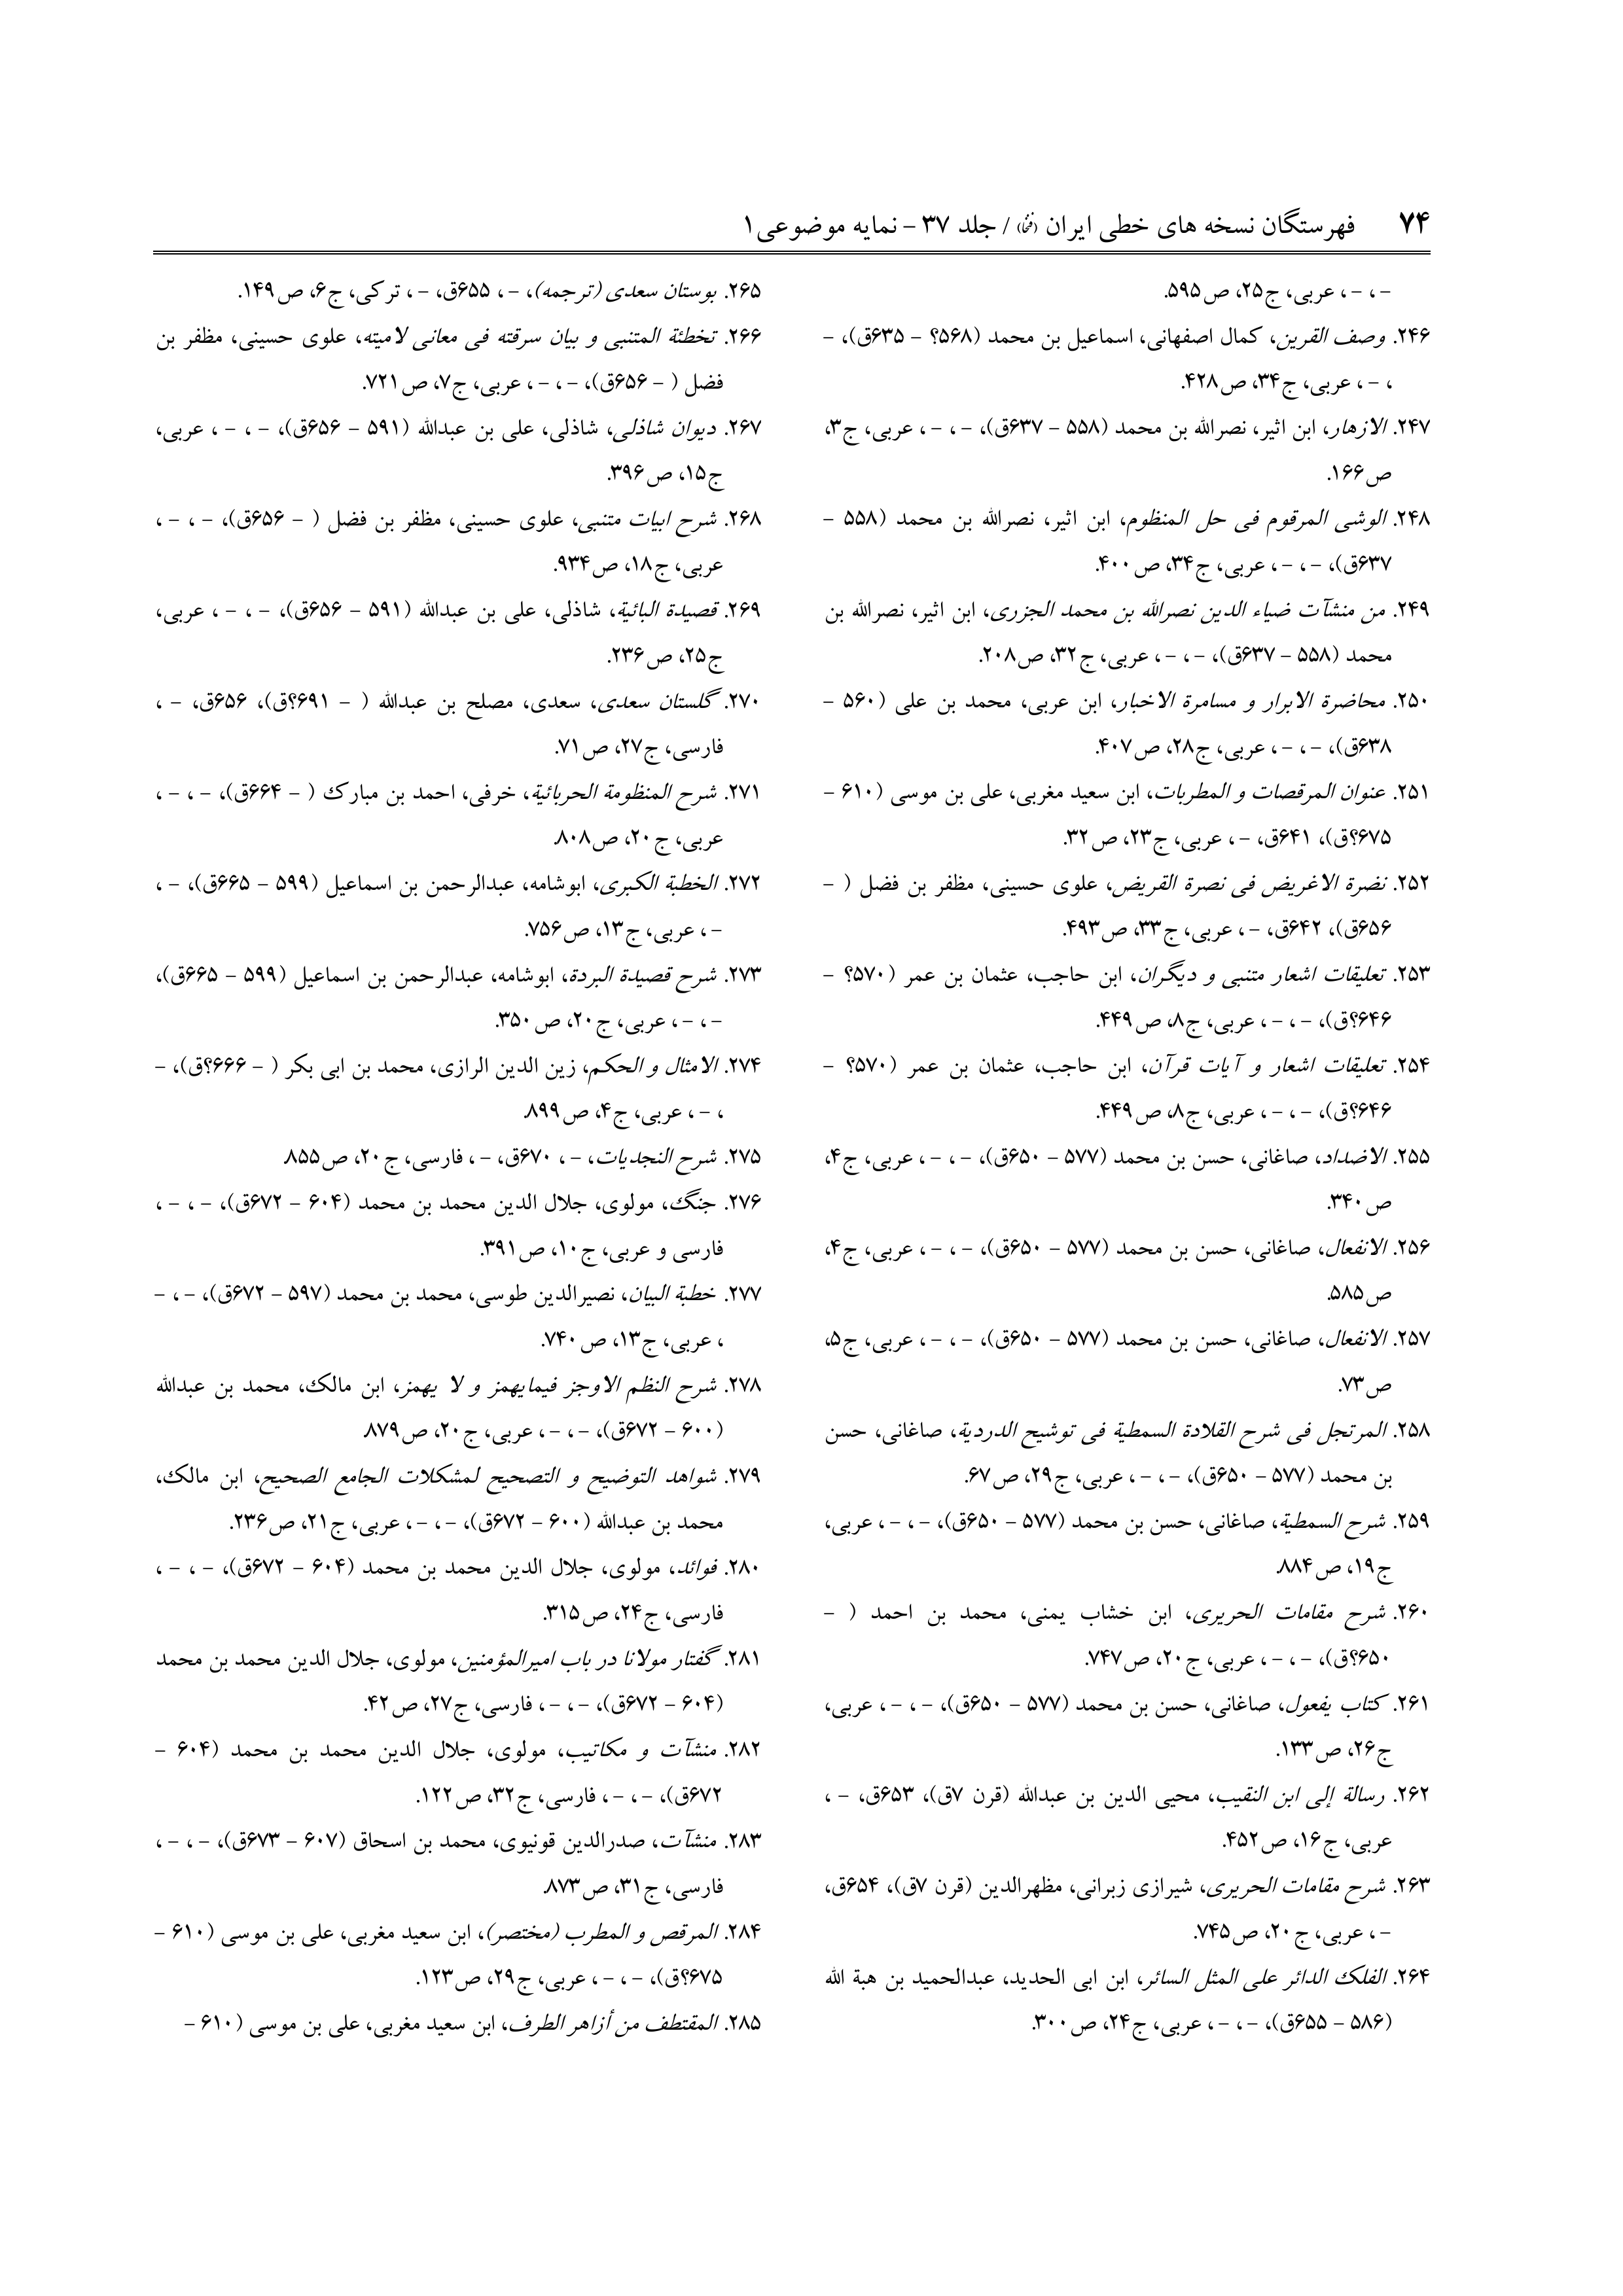 ۷۴ فهرستگان نسخه های خطی ایران (فنخا) / جلد ۳۷ – نمایه موضوعی۱
–، –، عربی، ج۲۵، ص۵۹۵.
۲۴۶. وصف القرین، کمال اصفهانی، اسماعیل بن محمد (۵۶۸؟ – ۶۳۵ق)، –
، –، عربی، ج۳۴، ص۴۲۸.
۲۴۷. الازهار، ابن اثیر، نصرالله بن محمد (۵۵۸ – ۶۳۷ق)، –، –، عربی، ج۳،
ص۱۶۶.
۲۴۸. الوشی المرقوم فی حل المنظوم، ابن اثیر، نصرالله بن محمد (۵۵۸ –
۶۳۷ق)، –، –، عربی، ج۳۴، ص۴۰۰.
۲۴۹. من منشآت ضیاء الدین نصرالله بن محمد الجزری، ابن اثیر، نصرالله بن
محمد (۵۵۸ – ۶۳۷ق)، –، –، عربی، ج۳۲، ص۲۰۸.
۲۵۰. محاضرة الابرار و مسامرة الاخبار، ابن عربی، محمد بن علی (۵۶۰ –
۶۳۸ق)، –، –، عربی، ج۲۸، ص۴۰۷.
۲۵۱. عنوان المرقصات و المطربات، ابن سعید مغربی، علی بن موسی (۶۱۰ –
۶۷۵؟ق)، ۶۴۱ق، –، عربی، ج۲۳، ص۳۲.
۲۵۲. نضرة الاغریض فی نصرة القریض، علوی حسینی، مظفر بن فضل ( –
۶۵۶ق)، ۶۴۲ق، –، عربی، ج۳۳، ص۴۹۳.
۲۵۳. تعلیقات اشعار متنبی و دیگران، ابن حاجب، عثمان بن عمر (۵۷۰؟ –
۶۴۶؟ق)، –، –، عربی، ج۸، ص۴۴۹.
۲۵۴. تعلیقات اشعار و آیات قرآن، ابن حاجب، عثمان بن عمر (۵۷۰؟ –
۶۴۶؟ق)، –، –، عربی، ج۸، ص۴۴۹.
۲۵۵. الاضداد، صاغانی، حسن بن محمد (۵۷۷ – ۶۵۰ق)، –، –، عربی، ج۴،
ص۳۴۰.
۲۵۶. الانفعال، صاغانی، حسن بن محمد (۵۷۷ – ۶۵۰ق)، –، –، عربی، ج۴،
ص۵۸۵.
۲۵۷. الانفعال، صاغانی، حسن بن محمد (۵۷۷ – ۶۵۰ق)، –، –، عربی، ج۵،
ص۷۳.
۲۵۸. المرتجل فی شرح القلادة السمطیة فی توشیح الدردیة، صاغانی، حسن
بن محمد (۵۷۷ – ۶۵۰ق)، –، –، عربی، ج۲۹، ص۶۷.
۲۵۹. شرح السمطیة، صاغانی، حسن بن محمد (۵۷۷ – ۶۵۰ق)، –، –، عربی،
ج۱۹، ص۸۸۴.
۲۶۰. شرح مقامات الحریری، ابن خشاب یمنی، محمد بن احمد ( –
۶۵۰؟ق)، –، –، عربی، ج۲۰، ص۷۴۷.
۲۶۱. کتاب یفعول، صاغانی، حسن بن محمد (۵۷۷ – ۶۵۰ق)، –، –، عربی،
ج۲۶، ص۱۳۳.
۲۶۲. رسالة إلی ابن النقیب، محیی الدین بن عبدالله (قرن ۷ق)، ۶۵۳ق، –،
عربی، ج۱۶، ص۴۵۲.
۲۶۳. شرح مقامات الحریری، شیرازی زبرانی، مظهرالدین (قرن ۷ق)، ۶۵۴ق،
–، عربی، ج۲۰، ص۷۴۵.
۲۶۴. الفلک الدائر علی المثل السائر، ابن ابی الحدید، عبدالحمید بن هبة الله
(۵۸۶ – ۶۵۵ق)، –، –، عربی، ج۲۴، ص۳۰۰.
۲۶۵. بوستان سعدی (ترجمه)، –، ۶۵۵ق، –، ترکی، ج۶، ص۱۴۹.
۲۶۶. تخطئة المتنبی و بیان سرقته فی معانی لامیته، علوی حسینی، مظفر بن
فضل ( – ۶۵۶ق)، –، –، عربی، ج۷، ص۷۲۱.
۲۶۷. دیوان شاذلی، شاذلی، علی بن عبدالله (۵۹۱ – ۶۵۶ق)، –، –، عربی،
ج۱۵، ص۳۹۶.
۲۶۸. شرح ابیات متنبی، علوی حسینی، مظفر بن فضل ( – ۶۵۶ق)، –، –،
عربی، ج۱۸، ص۹۳۴.
۲۶۹. قصیدة البائیة، شاذلی، علی بن عبدالله (۵۹۱ – ۶۵۶ق)، –، –، عربی،
ج۲۵، ص۲۳۶.
۲۷۰. گلستان سعدی، سعدی، مصلح بن عبدالله ( – ۶۹۱؟ق)، ۶۵۶ق، –،
فارسی، ج۲۷، ص۷۱.
۲۷۱. شرح المنظومة الحربائیة، خرفی، احمد بن مبارک ( – ۶۶۴ق)، –، –،
عربی، ج۲۰، ص۸۰۸.
۲۷۲. الخطبة الکبری، ابوشامه، عبدالرحمن بن اسماعیل (۵۹۹ – ۶۶۵ق)، –،
–، عربی، ج۱۳، ص۷۵۶.
۲۷۳. شرح قصیدة البردة، ابوشامه، عبدالرحمن بن اسماعیل (۵۹۹ – ۶۶۵ق)،
–، –، عربی، ج۲۰، ص۳۵۰.
۲۷۴. الامثال و الحکم، زین الدین الرازی، محمد بن ابی بکر ( – ۶۶۶؟ق)، –
، –، عربی، ج۴، ص۸۹۹.
۲۷۵. شرح النجدیات، –، ۶۷۰ق، –، فارسی، ج۲۰، ص۸۵۵.
۲۷۶. جنگ، مولوی، جلال الدین محمد بن محمد (۶۰۴ – ۶۷۲ق)، –، –،
فارسی و عربی، ج۱۰، ص۳۹۱.
۲۷۷. خطبة البیان، نصیرالدین طوسی، محمد بن محمد (۵۹۷ – ۶۷۲ق)، –، –
، عربی، ج۱۳، ص۷۴۰.
۲۷۸. شرح النظم الاوجز فیمایهمز و لا یهمز، ابن مالک، محمد بن عبدالله
(۶۰۰ – ۶۷۲ق)، –، –، عربی، ج۲۰، ص۸۷۹.
۲۷۹. شواهد التوضیح و التصحیح لمشکلات الجامع الصحیح، ابن مالک،
محمد بن عبدالله (۶۰۰ – ۶۷۲ق)، –، –، عربی، ج۲۱، ص۲۳۶.
۲۸۰. فوائد، مولوی، جلال الدین محمد بن محمد (۶۰۴ – ۶۷۲ق)، –، –،
فارسی، ج۲۴، ص۳۱۵.
۲۸۱. گفتار مولانا در باب امیرالمؤمنین، مولوی، جلال الدین محمد بن محمد
(۶۰۴ – ۶۷۲ق)، –، –، فارسی، ج۲۷، ص۴۲.
۲۸۲. منشآت و مکاتیب، مولوی، جلال الدین محمد بن محمد (۶۰۴ –
۶۷۲ق)، –، –، فارسی، ج۳۲، ص۱۲۲.
۲۸۳. منشآت، صدرالدین قونیوی، محمد بن اسحاق (۶۰۷ – ۶۷۳ق)، –، –،
فارسی، ج۳۱، ص۸۷۳.
۲۸۴. المرقص و المطرب (مختصر)، ابن سعید مغربی، علی بن موسی (۶۱۰ –
۶۷۵؟ق)، –، –، عربی، ج۲۹، ص۱۲۳.
۲۸۵. المقتطف من أزاهر الطرف، ابن سعید مغربی، علی بن موسی (۶۱۰ –